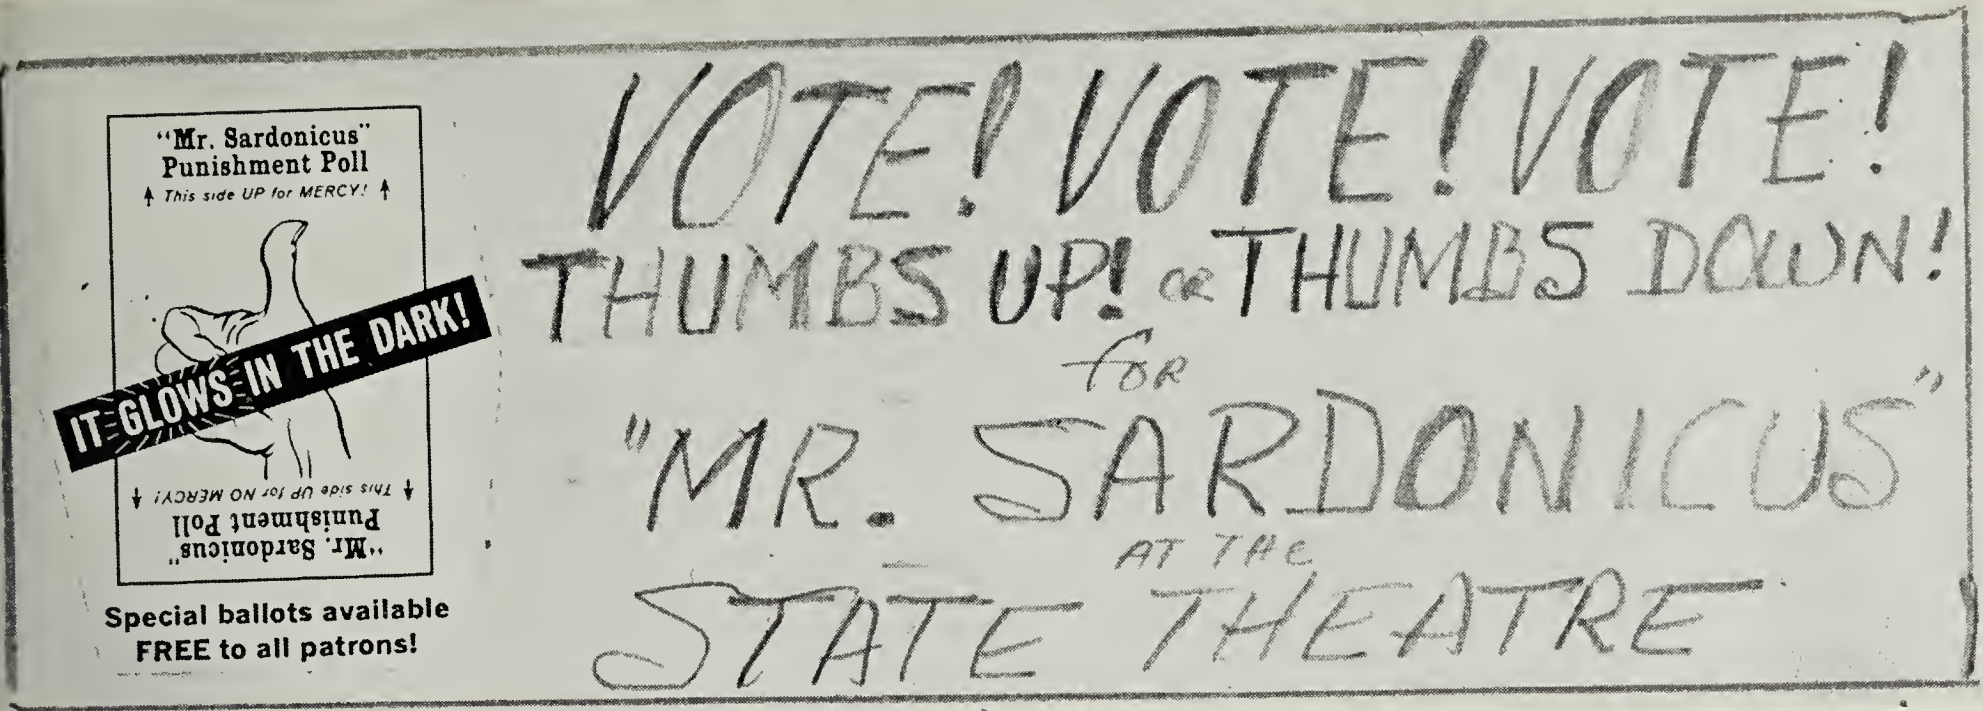 "Mr. Sardonicus"
Punishment Poll
This side UP for MERCY!
IT GLOWS IN THE DARK!
This side UP for NO MERCY!
Punishment Poll
"Mr. Sardonicus"
Special ballots available
FREE to all patrons!
VOTE! VOTE! VOTE!
THUMBS UP! OR THUMBS DOWN!
for
"MR. SARDONICUS"
AT THE
STATE THEATRE